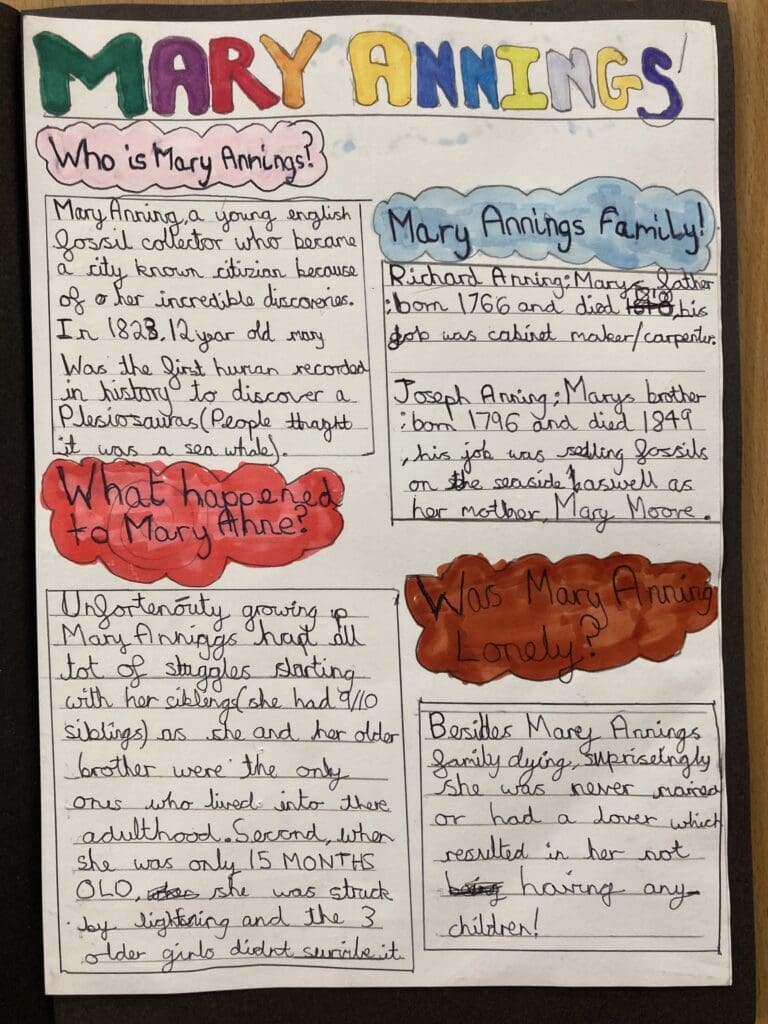 MARY ANNINGS'
Who is Mary Annings?
Mary Anning, a young english
fossil collector who became
a city known citizian because
of her incredible discoveries.
In 1823, 12 year old mary
Was the first human recorded
in history to discover a
Plesiosauras (People thaght
it was a sea whale).
Mary Annings Family!
Richard Anning: Marys father
: born 1766 and died 1810, his
job was cabinet maker/carpenter.
Joseph Anning: Marys brother
: born 1796 and died 1849
, his job was selling fossils
on the seaside aswell as
her mother, Mary Moore.
What happened
to Mary Anne?
Unfortenouty growing up
Mary Anniggs had all
tot of struggles starting
with her siblengs (she had 9/10
siblings) as she and her older
brother were the only
ones who lived into there
adulthood. Second, when
she was only 15 MONTHS
OLD, she was struck
by lightning and the 3
older girls didnt survive it.
Was Mary Anning
Lonely?
Besides Marey Annings
family dying, suprisetngly
she was never maired
or had a lover which
resulted in her not
having any
children!